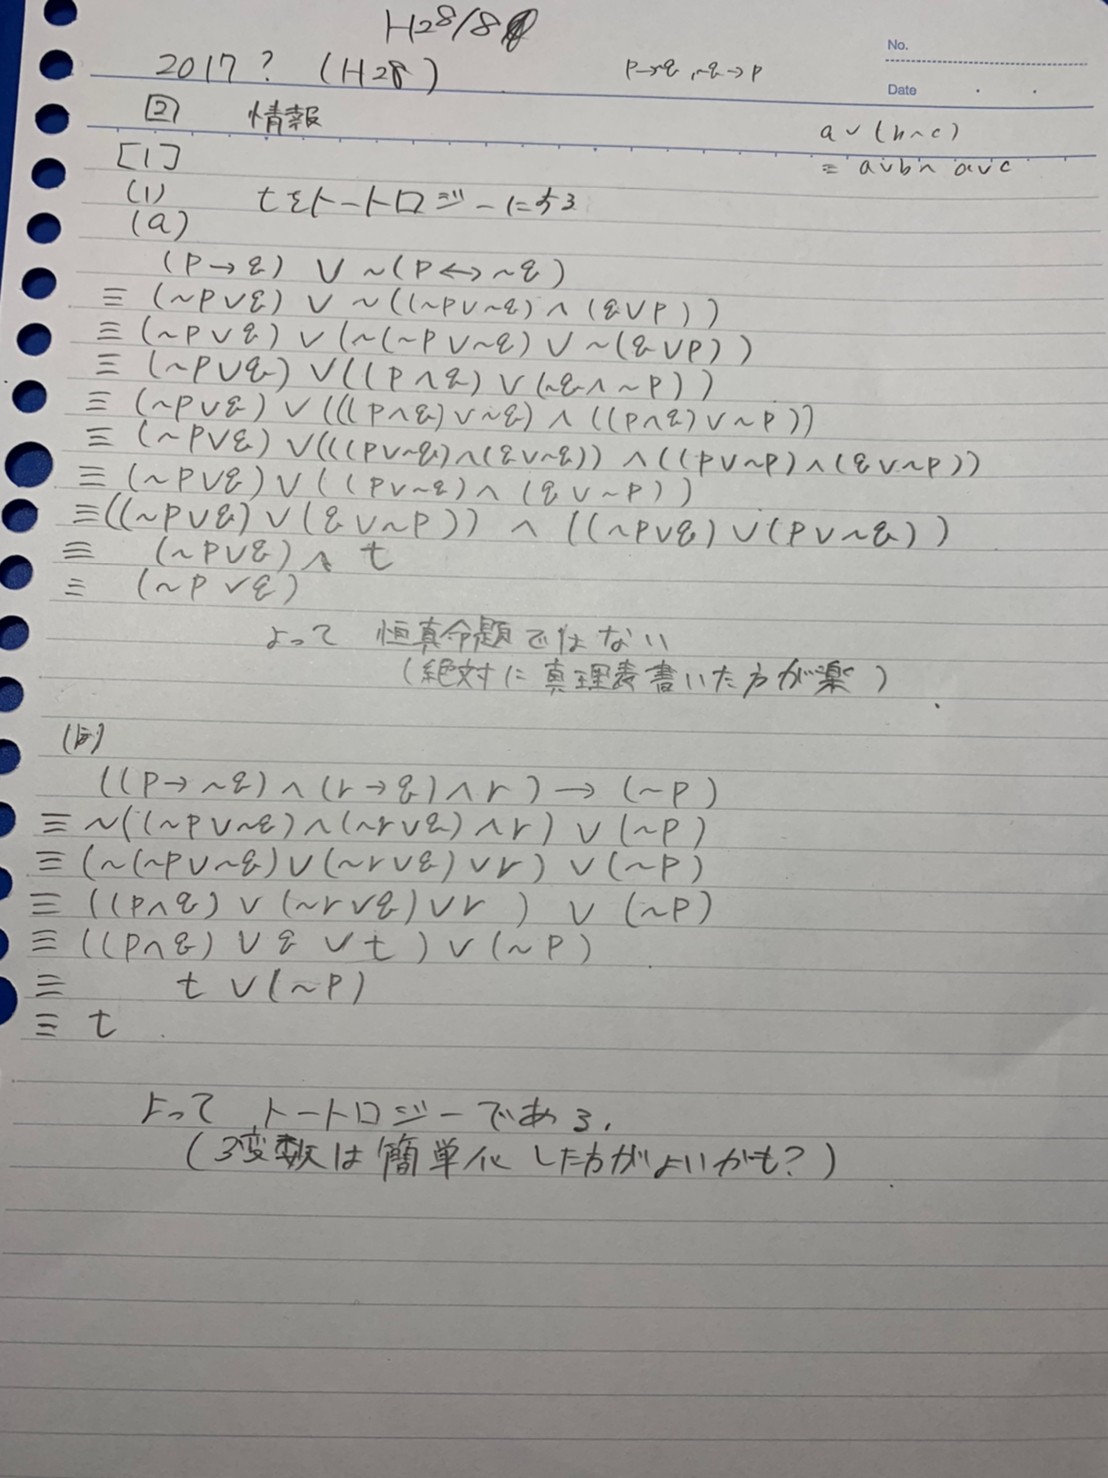 H28/8
2017? (H28)
P→q, ~q→P
No.
Date
2 情報
a∨(b∧c)
≡ a∨b∧a∨c
[1]
(1) tをトートロジーにする
(a)
(P→q) ∨ ~(P↔~q)
≡ (~P∨q) ∨ ~((~P∨~q)∧(q∨P))
≡ (~P∨q) ∨ (~(~P∨~q) ∨ ~(q∨P))
≡ (~P∨q) ∨((P∧q) ∨ (~q∧~P))
≡ (~P∨q) ∨ (((P∧q)∨~q) ∧ ((P∧q)∨~P))
≡ (~P∨q) ∨(((P∨~q)∧(q∨~q)) ∧((P∨~P)∧(q∨~P))
≡ (~P∨q)∨((P∨~q)∧(q∨~P))
≡((~P∨q)∨(q∨~P)) ∧ ((~P∨q)∨(P∨~q))
≡ (~P∨q)∧ t
≡ (~P∨q)
よって 恒真命題ではない
(絶対に真理表書いた方が楽)
((P→~q)∧(r→q)∧r)→(~P)
≡ ~((~P∨~q)∧(~r∨q)∧r) ∨ (~P)
≡ (~(~P∨~q)∨(~r∨q)∨r) ∨ (~P)
≡ ((P∧q) ∨ (~r∨q)∨r) ∨ (~P)
≡ ((P∧q) ∨ q ∨ t) ∨ (~P)
≡ t ∨ (~P)
≡ t
よって トートロジーである.
(3変数は簡単化した方がよいかも?)